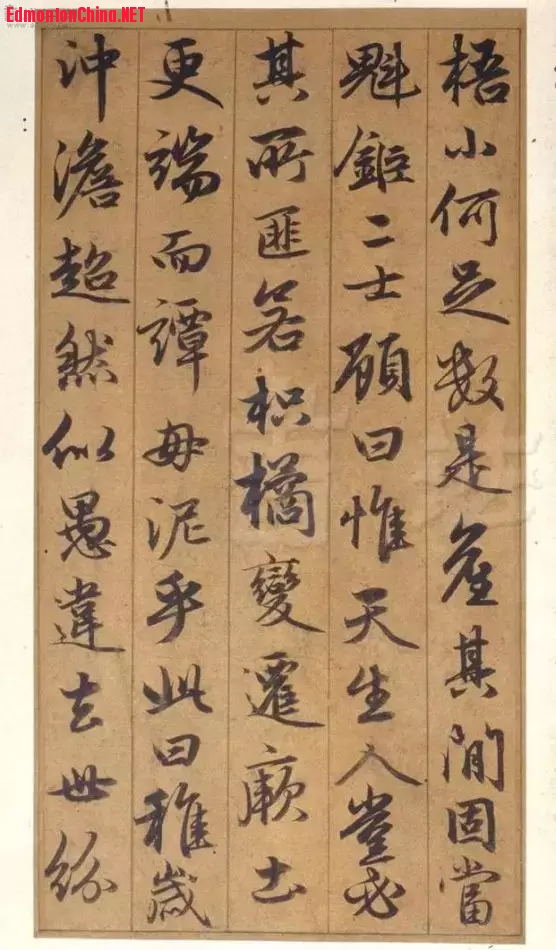 EdmontonChina.NET
梧小何足数是產其間固當
魁鉅二士顧曰惟天生人豈必
其所匪若枳橘變遷厥土
更端而譚毋泥乎此曰稚歲
沖澹超然似愚違去世紛